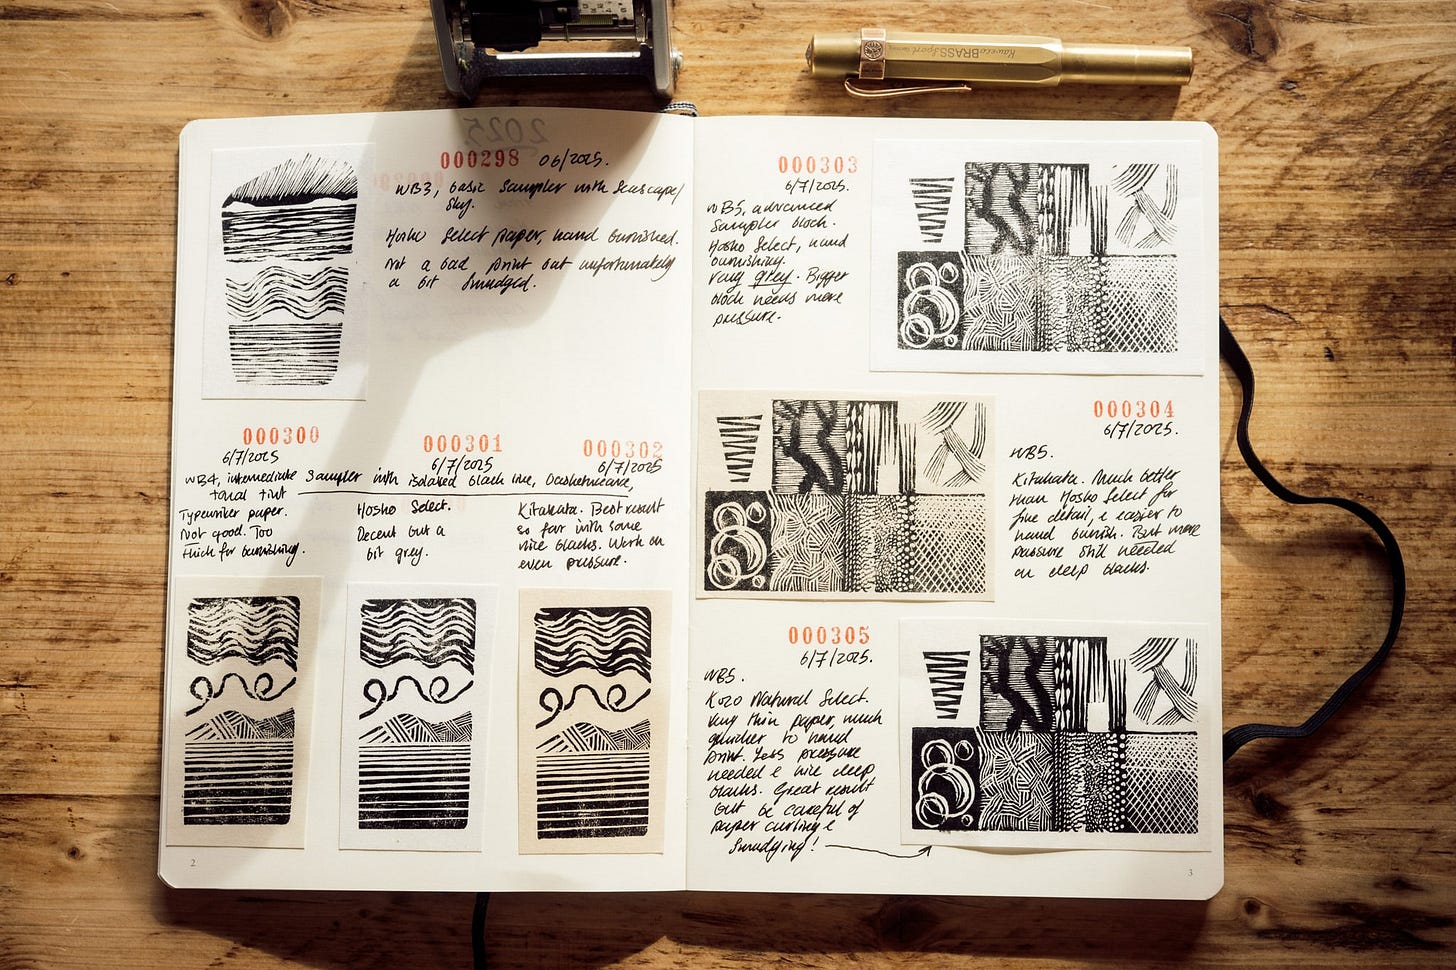 2025
000298 06/2025.
WB3, basic sampler with seascape/
sky.
Hosho Select paper, hand burnished.
Not a bad print but unfortunately
a bit smudged.
000300
6/7/2025
000301
6/7/2025
000302
6/7/2025
WB4, intermediate sampler with isolated black line, basketweave,
tonal tint
Typewriter paper.
Not good. Too
thick for burnishing.
Hosho Select.
Decent but a
bit grey.
Kitakata. Best result
so far with some
nice blacks. Work on
even pressure.
2
000303
6/7/2025.
WB5, advanced
sampler block.
Hosho Select, hand
burnishing.
Very grey. Bigger
block needs more
pressure.
000304
6/7/2025.
WB5.
Kitakata. Much better
than Hosho Select for
fine detail, & easier to
hand burnish. But more
pressure still needed
on deep blacks.
000305
6/7/2025.
WB5.
Kozo Natural Select.
Very thin paper, much
quicker to hand
print. Less pressure
needed & nice deep
blacks. Great result
but be careful of
paper curling &
smudging!
3
Kaweco BRASS Sport